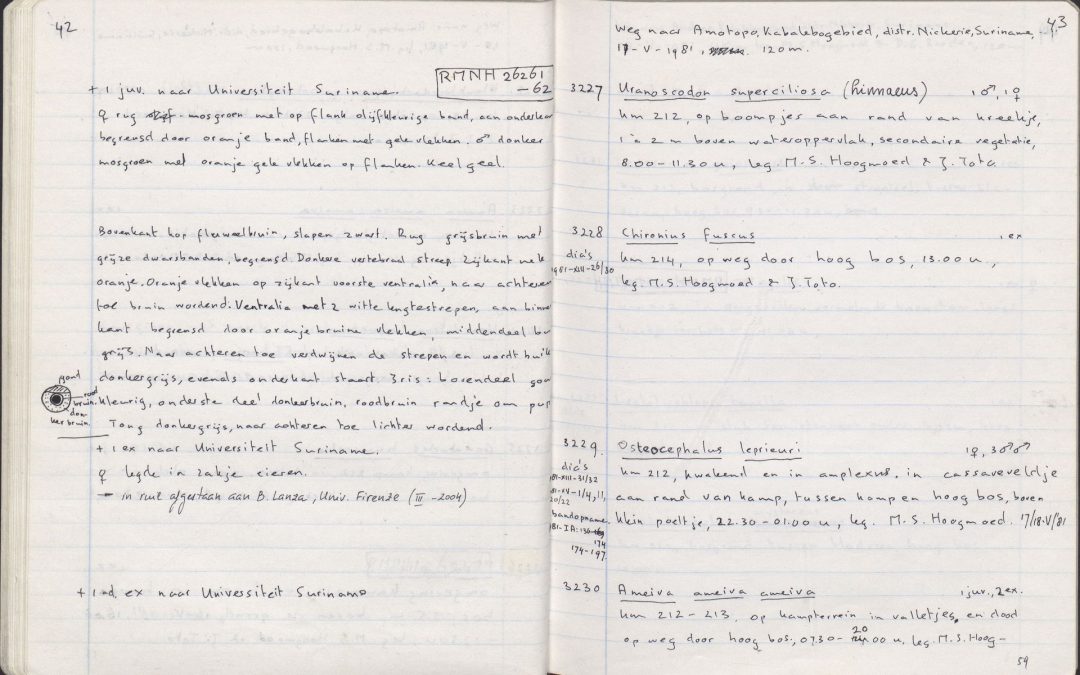 42
RMNH 26261
-62
+ 1 juv. naar Universiteit Suriname.
♀ rug mosgroen met op flank olijfkleurige band, aan onderkan
begrensd door oranje band, flanken met gele vlekken. ♂ donker
mosgroen met oranje gele vlekken op flanken. Keel geel.
Bovenkant kop fluweelbruin, slapen zwart. Rug grijsbruin met
grijze dwarsbanden, begrensd. Donkere vertebraal streep. Zijkant nek
oranje. Oranje vlekken op zijkant voorste ventralia, naar achteren
toe bruin wordend. Ventralia met 2 witte lengtestrepen, aan binne
kant begrensd door oranjebruine vlekken, middendeel
grijs. Naar achteren toe verdwijnen de strepen en wordt buik
donkergrijs, evenals onderkant staart. Iris: bovendeel gou
kleurig, onderste deel donkerbruin, roodbruin randje om pup
Tong donkergrijs, naar achteren toe lichter wordend.
goud
rood
bruin.
don-
kerbruin.
+ 1 ex naar Universiteit Suriname.
♀ legde in zakje eieren.
— in ruil afgestaan aan B. Lanza, Univ. Firenze (III-2004)
+ 1 ad. ex naar Universiteit Suriname
43
Weg naar Amotopo, Kabalebogebied, distr. Nickerie, Suriname,
17-V-1981, 120m.
3227 Uranoscodon superciliosa (Linnaeus) 1♂, 1♀
km 212, op boompjes aan rand van kreekje,
1 à 2 m boven wateroppervlak, secondaire vegetatie,
8.00-11.30 u, leg. M.S. Hoogmoed & J. Toto
3228 Chironius fuscus 1 ex
dia's
1981-XIII-26/30
km 214, op weg door hoog bos, 13.00 u.,
leg. M.S. Hoogmoed & J. Toto.
3229. Osteocephalus leprieuri 1♀, 3♂♂
dia's
'81-XIII-31/32
'81-XV-1/4, 11,
20/22
bandopname
'81-IA:
174
174-197.
km 212, kwakend en in amplexus, in cassaveveldje
aan rand van kamp, tussen kamp en hoog bos, boven
klein poeltje, 22.30-01.00 u, leg. M.S. Hoogmoed. 17/18-V/'81
3230 Ameiva ameiva ameiva 1 juv., 2 ex.
km 212-213, op kampterrein in valletjes, en dood
op weg door hoog bos, 07.30- 20.00 u, leg. M.S. Hoog-
59